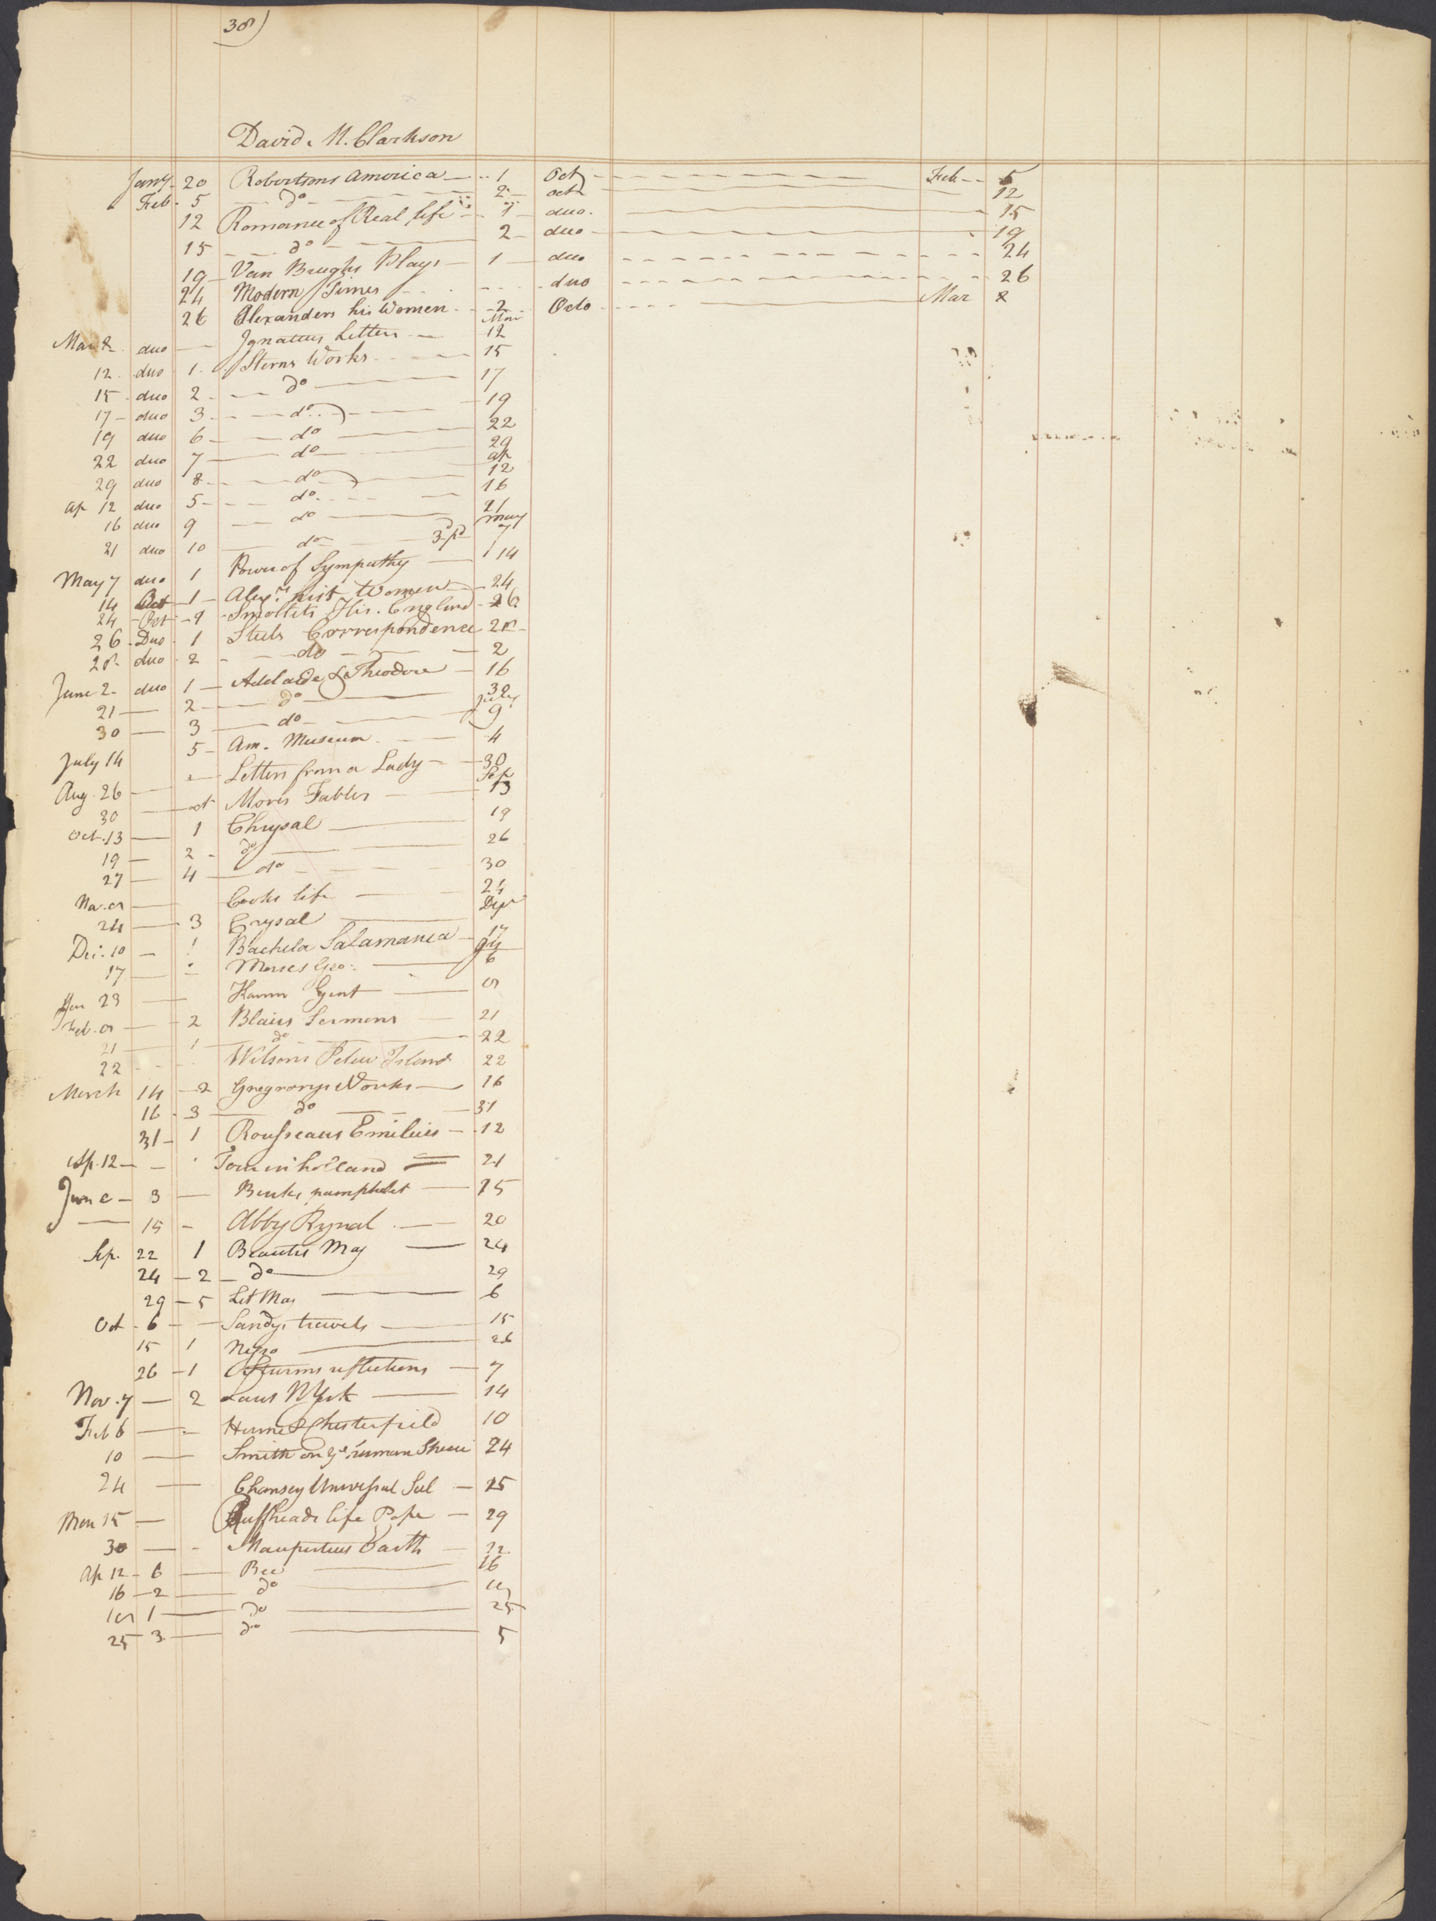 38)
David. M. Clarkson
Jany 20 Robertsons America 1 Oct Feb 5
Feb 5 do 2 octo 12
12 Romance of Real life 1 duo 15
15 do 2 duo 19
19 Van Brughs Plays 1 duo 24
24 Modern Times duo 26
26 Alexanders his Women 2 Octo Mar 2
Mar 2 duo Ignatius Letters Mar 12
12 duo 1 Sterns Works 15
15 duo 2 do 17
17 duo 3 do 19
19 duo 6 do 22
22 duo 7 do 29
29 duo 8 do ap 12
ap 12 duo 5 do 16
16 duo 9 do 21
21 duo 10 do may 7
May 7 duo 1 Power of Sympathy 14
14 Oct 1 Alexrs hist Women 24
24 Oct 9 Smollets His. England 26
26 Duo 1 Steels Correspondence 28
28 duo 2 do 2
June 2 duo 1 Adelaide & Theodore 16
21 2 do 30
30 3 do July 9
July 14 5 Am. Museum 4
Aug. 26 Letters from a Lady 30
30 Mores Fables Sep 13
Oct. 13 1 Chrysal 19
19 2 do 26
27 4 do 30
Nov. 8 Cooks life 24
24 3 Crysal Decr
Dec. 10 1 Bachelr Salamanca 17
17 Morses Geo: 6
Jan 23 Gent 8
Feb. 8 2 Blairs Sermons 21
21 1 do 22
22 Wilsons Pelew Island 22
March 14 2 Gregorys Works 16
16 3 do 31
31 1 Rousseaus Emilius 12
Ap. 12 Tour in holland 21
June 3 Burks pamphlet 15
15 Abby Rynal 20
Sep. 22 1 Beauties Mag 24
24 2 do 29
29 5 Lit Mas 6
Oct 6 Sandys travels 15
15 1 Negro 26
26 1 Sturms reflections 7
Nov. 7 2 Laws N York 14
Feb 6 Hume & Chesterfield 10
10 Smith on ye human 24
24 Chansey Universal Sal 25
Mar 15 Ruffheads life Pope 29
30 Maupertius Earth 12
Ap 12 6 Bee 16
16 2 do 18
18 1 do 25
25 3 do 5